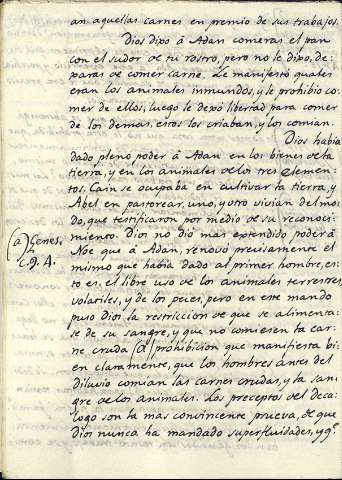 an aquellas carnes en premio de sus trabajos.
Dios dijo â Adan comeras el pan
con el sudor de tu rostro, pero no le dijo, de-
jaras de comer carne. Le manifestò quales
eran los animales inmundos, y le prohibio co-
mer de ellos; luego le dejó libertad para comer
de los demas, estos los criaban, y los comian.
Dios habia
dado pleno poder â Adan en los bienes de la
tierra, y en los animales de los tres elemen-
tos. Cain se ocupaba en cultivar la tierra, y
Abel en pastorear, uno, y otro vivian del mo-
do, que testificaron por medio de su reconoci-
miento. Dios no diô mas extendido poder â
(a) Genes.
Nôe que â Adan, renovó precisamente el
c. 9. 4.
mismo que habia dado al primer hombre, es-
to es, el libre uso de los animales terrestres
volatiles, y de los peces, pero en este mando
puso Dios la restriccion de que se alimenta-
se de su sangre, y que no comiesen la car-
ne cruda (a) prohibicion que manifiesta bi-
en claramente, que los hombres antes del
diluvio comian las carnes crudas, y la san-
gre de los animales. Los preceptos del deca-
logo son la mas convincente prueva, de que
Dios nunca ha mandado superfluidades, y q.e